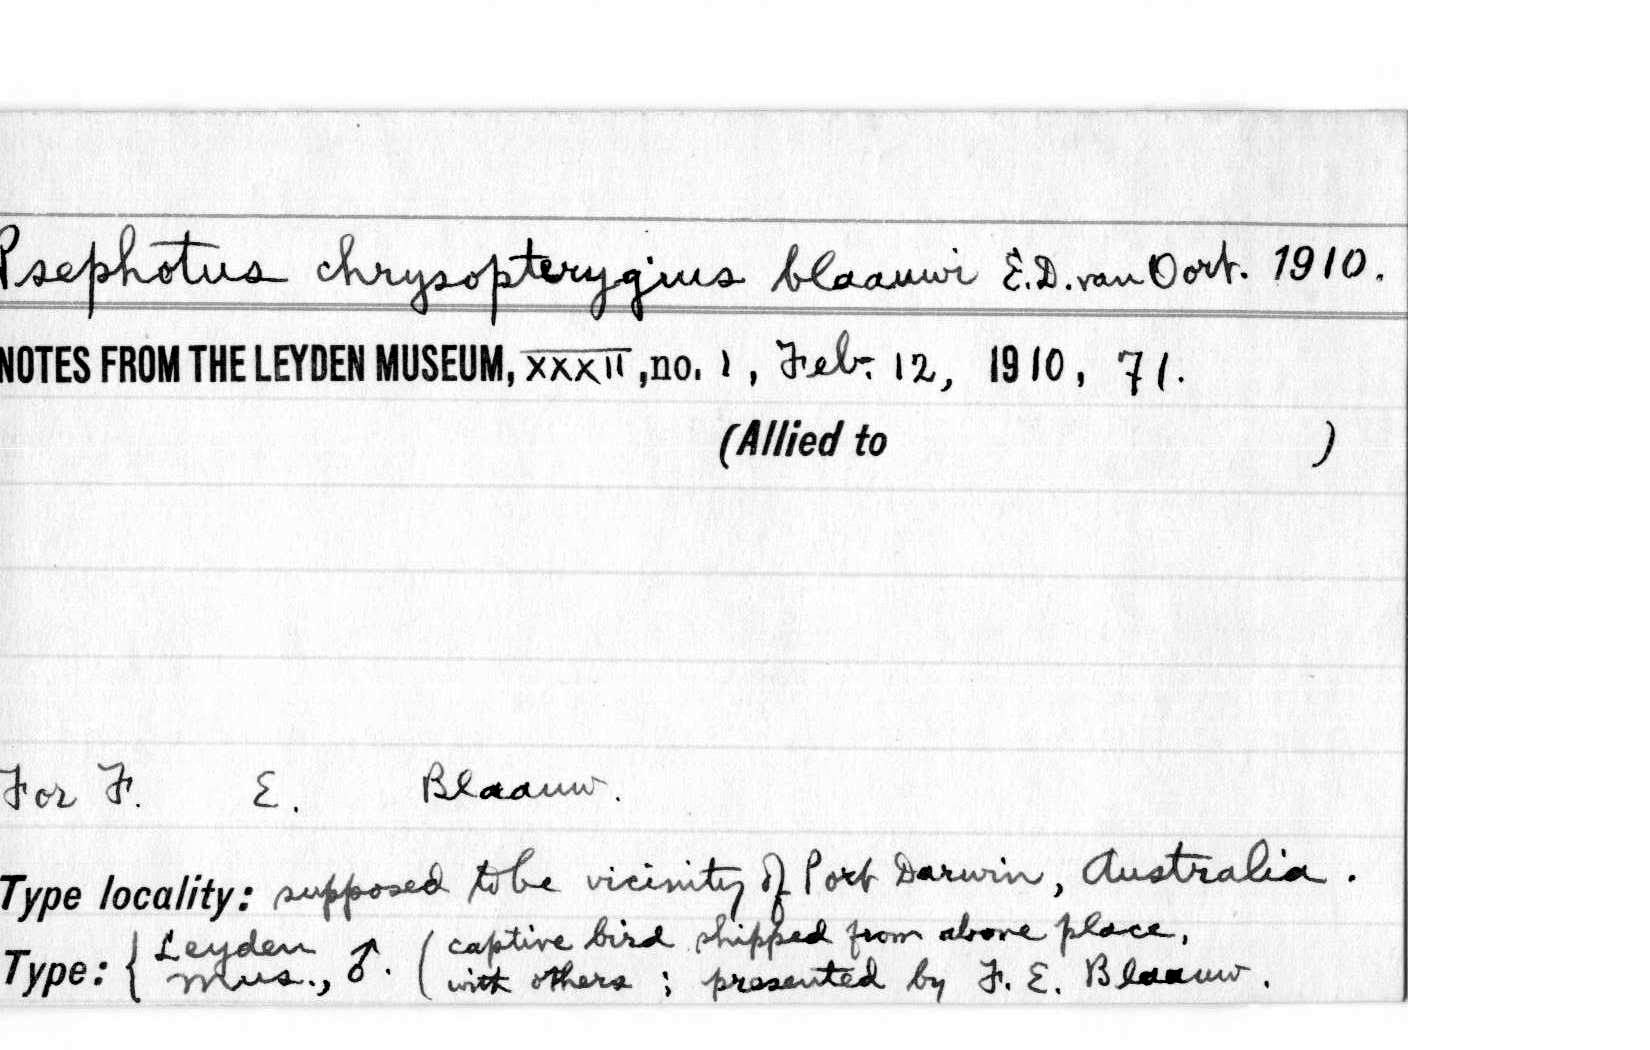 Psephotus chrysopterygius blaauwi E.D. van Oort. 1910.
NOTES FROM THE LEYDEN MUSEUM, XXXII, no. 1, Feb. 12, 1910, 71.
(Allied to )
For F. E. Blaauw.
Type locality: supposed to be vicinity of Port Darwin, Australia.
Type: { Leyden Mus., ♂. (captive bird shipped from above place,
with others; presented by F. E. Blaauw.